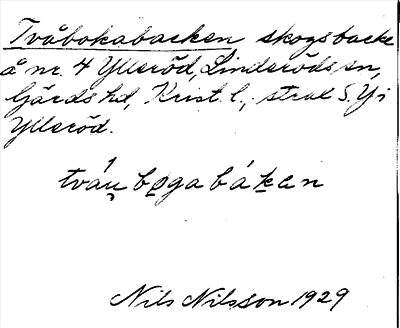 Tvåbokabacken skogsbacke
å nr. 4 Ylleröd, Linderöds sn,
Gärds hd, Krist. l.; strax S. Y i
Ylleröd.
tváu̯ bo̱ga bá ḵen
Nils Nilsson 1929